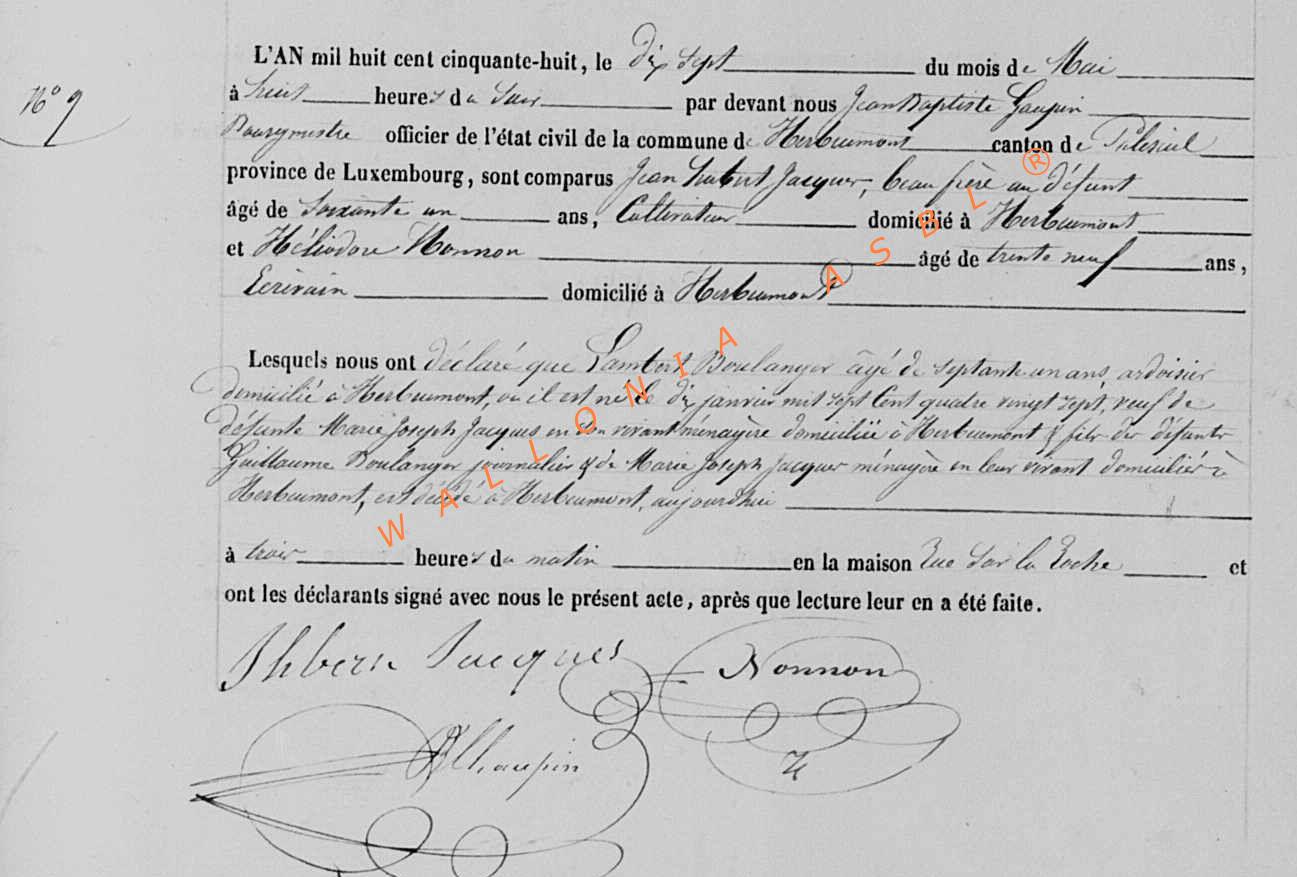 L'AN mil huit cent cinquante-huit, le dix sept du mois de Mai
N° 9
à huit heures du Soir par devant nous Jean Baptiste
Bourgmestre officier de l'état civil de la commune de Herbeumont canton de Paliseul
province de Luxembourg, sont comparus Jean hubert Jacques, beau frère au défunt
âgé de Soixante un ans, Cultivateur domicilié à Herbeumont
et Héliodore Nonnon âgé de trente neuf ans,
Ecrivain domicilié à Herbeumont
Lesquels nous ont déclaré que Lambert Boulanger âgé de septante un ans, ardoisier
domicilié à Herbeumont, où il est né le dix janvier mil sept Cent quatre vingt sept, veuf de
défunte Marie Joseph Jacques en son vivant ménagère domiciliée à Herbeumont & fils des défunts
Guillaume Boulanger journalier & de Marie Joseph Jacques ménagère en leur vivant domiciliés à
Herbeumont, est décédé à Herbeumont, aujourdhui
à trois heures du matin en la maison Rue Sur la Roche et
ont les déclarants signé avec nous le présent acte, après que lecture leur en a été faite.
Jacques Nonnon
WALLONIA ASBL ®